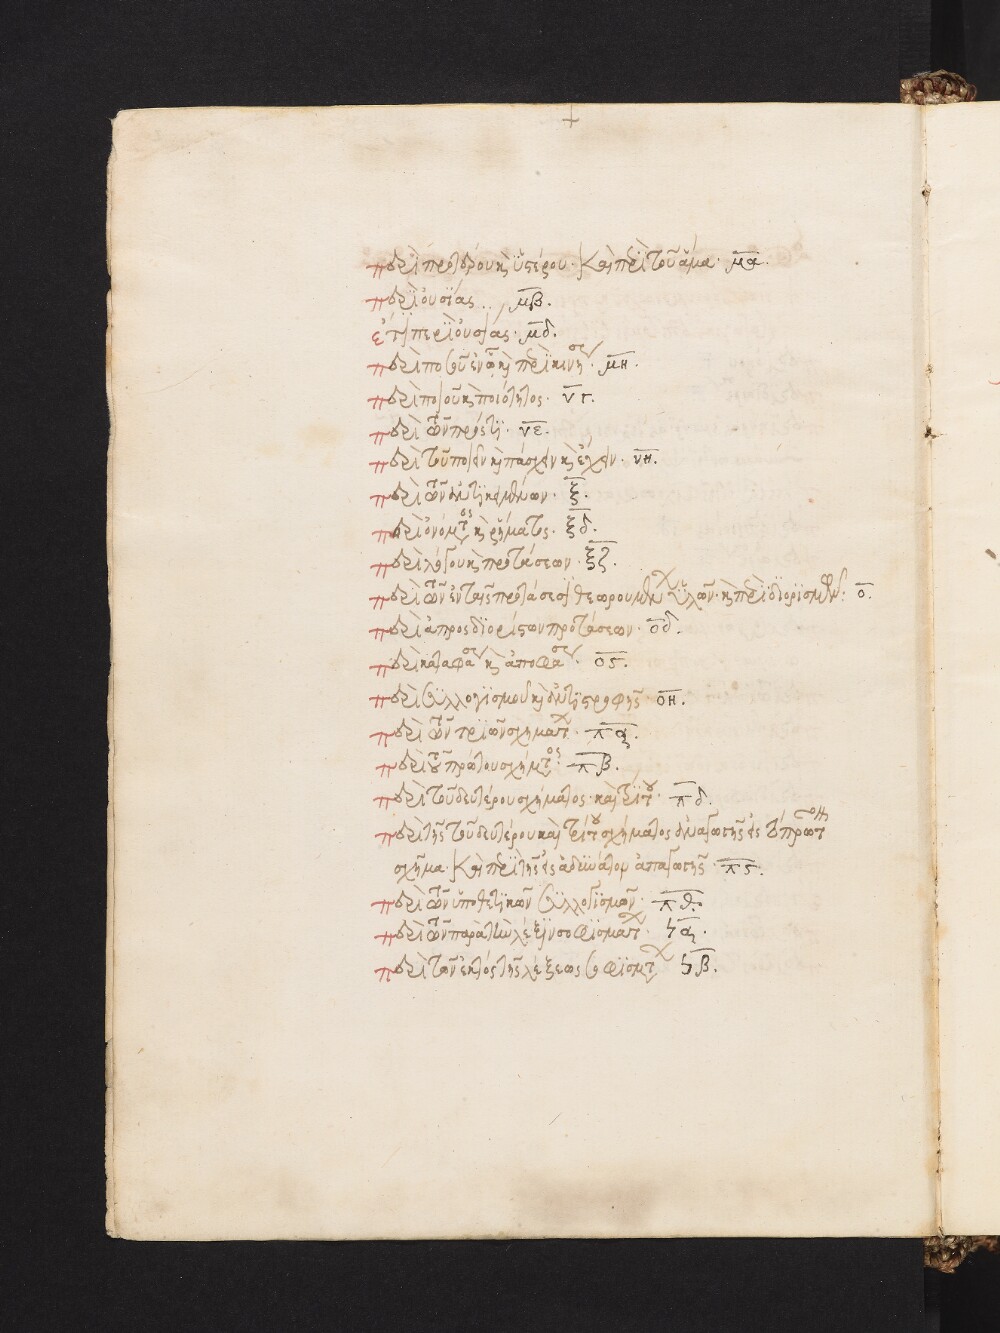 περὶ προτέρου κ̀ ὑστέρου· Καὶ περὶ τοῦ ἅμα· μα.
περὶ οὐσίας .. , μβ.
ἔτι περὶ οὐσίας· μδ.
περὶ ποῦ κ̀ περὶ κινήσ· μη.
περὶ ποσοῦ κ̀ ποιότητος· νγ.
περὶ τῶν πρός τι· νε.
περὶ τοῦ ποιεῖν κ̀ πάσχειν κ̀ ἔχειν· νη.
περὶ τῶν ἀντικειμένων· ξ.
περὶ ὀνόματος κ̀ ῥήματος· ξδ.
περὶ λόγου κ̀ προτάσεων· ξζ.
περὶ τῶν ἐν ταῖς προτάσεσι θεωρουμένων ὑλῶν· κ̀ περὶ διορισμῶν· ο.
περὶ ἀπροσδιορίστων προτάσεων· οδ.
περὶ καταφάσ κ̀ ἀποφάσ· ος.
περὶ συλλογισμοῦ κ̀ ἀντιστροφῆς· οη.
περὶ τῶν τριῶν σχημάτ· πα.
περὶ τοῦ πρώτου σχήματος· πβ.
περὶ τοῦ δευτέρου σχήματος· καὶ τρίτου· πδ.
περὶ τῆς τοῦ δευτέρου καὶ τρίτου σχήματος ἀναγωγῆς εἰς τὸ πρῶτον
σχῆμα· Καὶ περὶ τῆς εἰς ἀδύνατον ἀπαγωγῆς· πς.
περὶ τῶν ὑποθετικῶν συλλογισμῶν· πθ.
περὶ τῶν παρὰ τὴν λέξιν σοφισμάτ· ϟα.
περὶ τῶν ἐκτὸς τῆς λέξεως σοφισμάτ ϟβ.